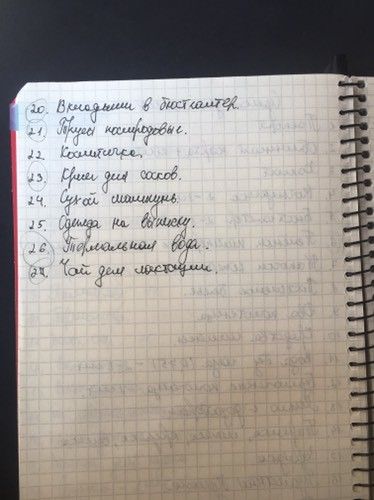 20. Вкладыши в бюстгалтер.
21. Трусы послеродовые.
22. Косметичка.
23. Крем для сосков.
24. Сухой шампунь.
25. Одежда на выписку.
26. Термальная вода.
27. Чай для лактации.